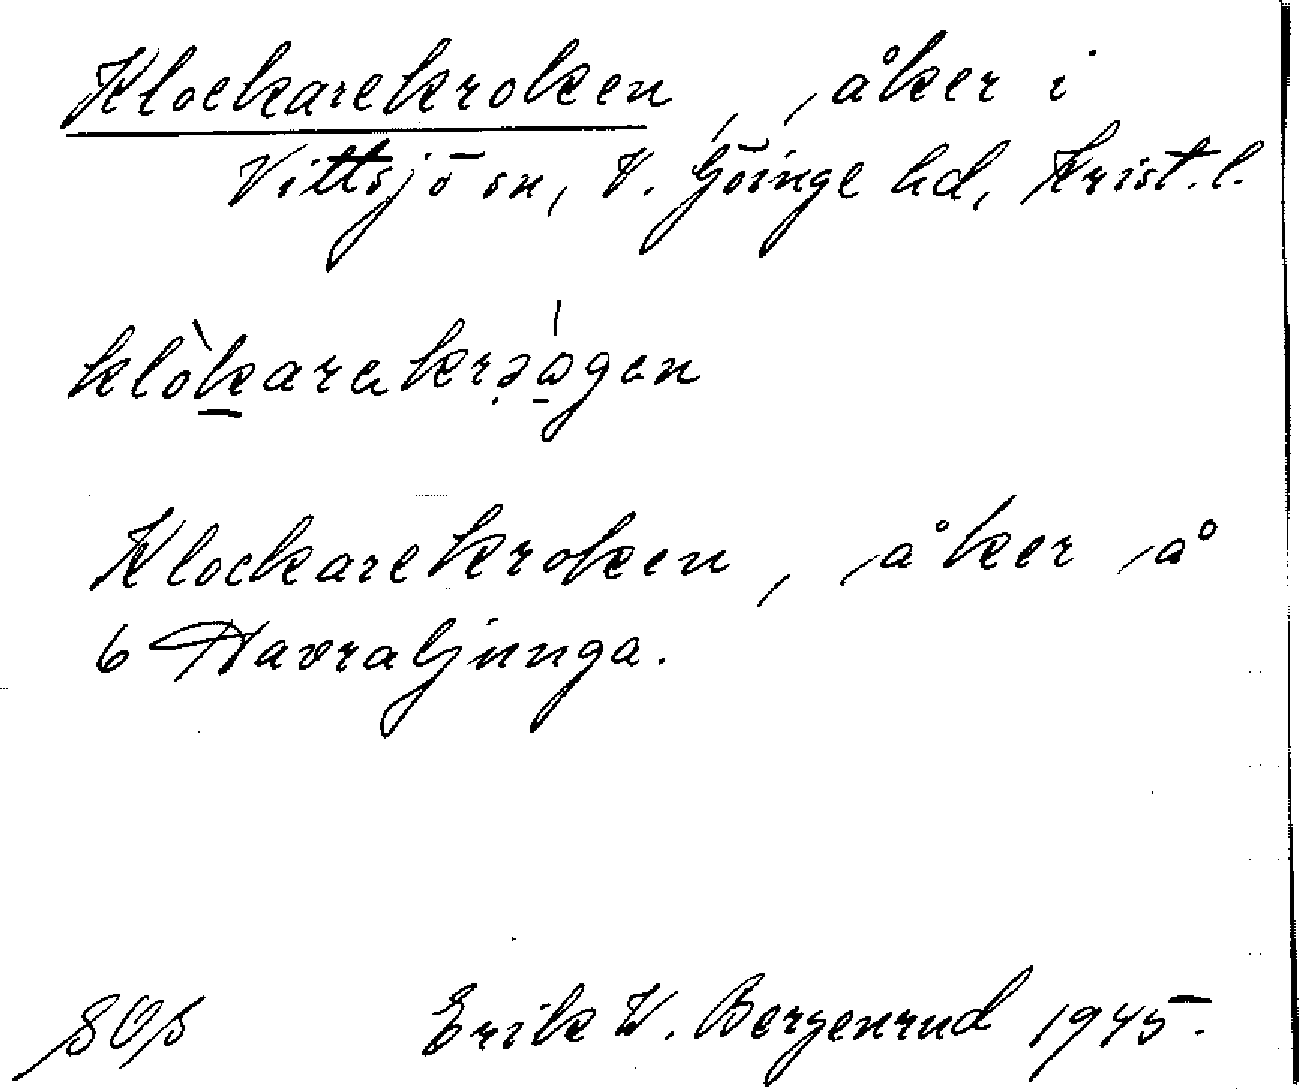 Klockarekroken, åker i
Vittsjö sn, V. Göinge hd, Krist. l.
klòkarakrəágan
Klockarekroken, åker å
6 Havraljunga.
Erik W. Bergenrud 1945.